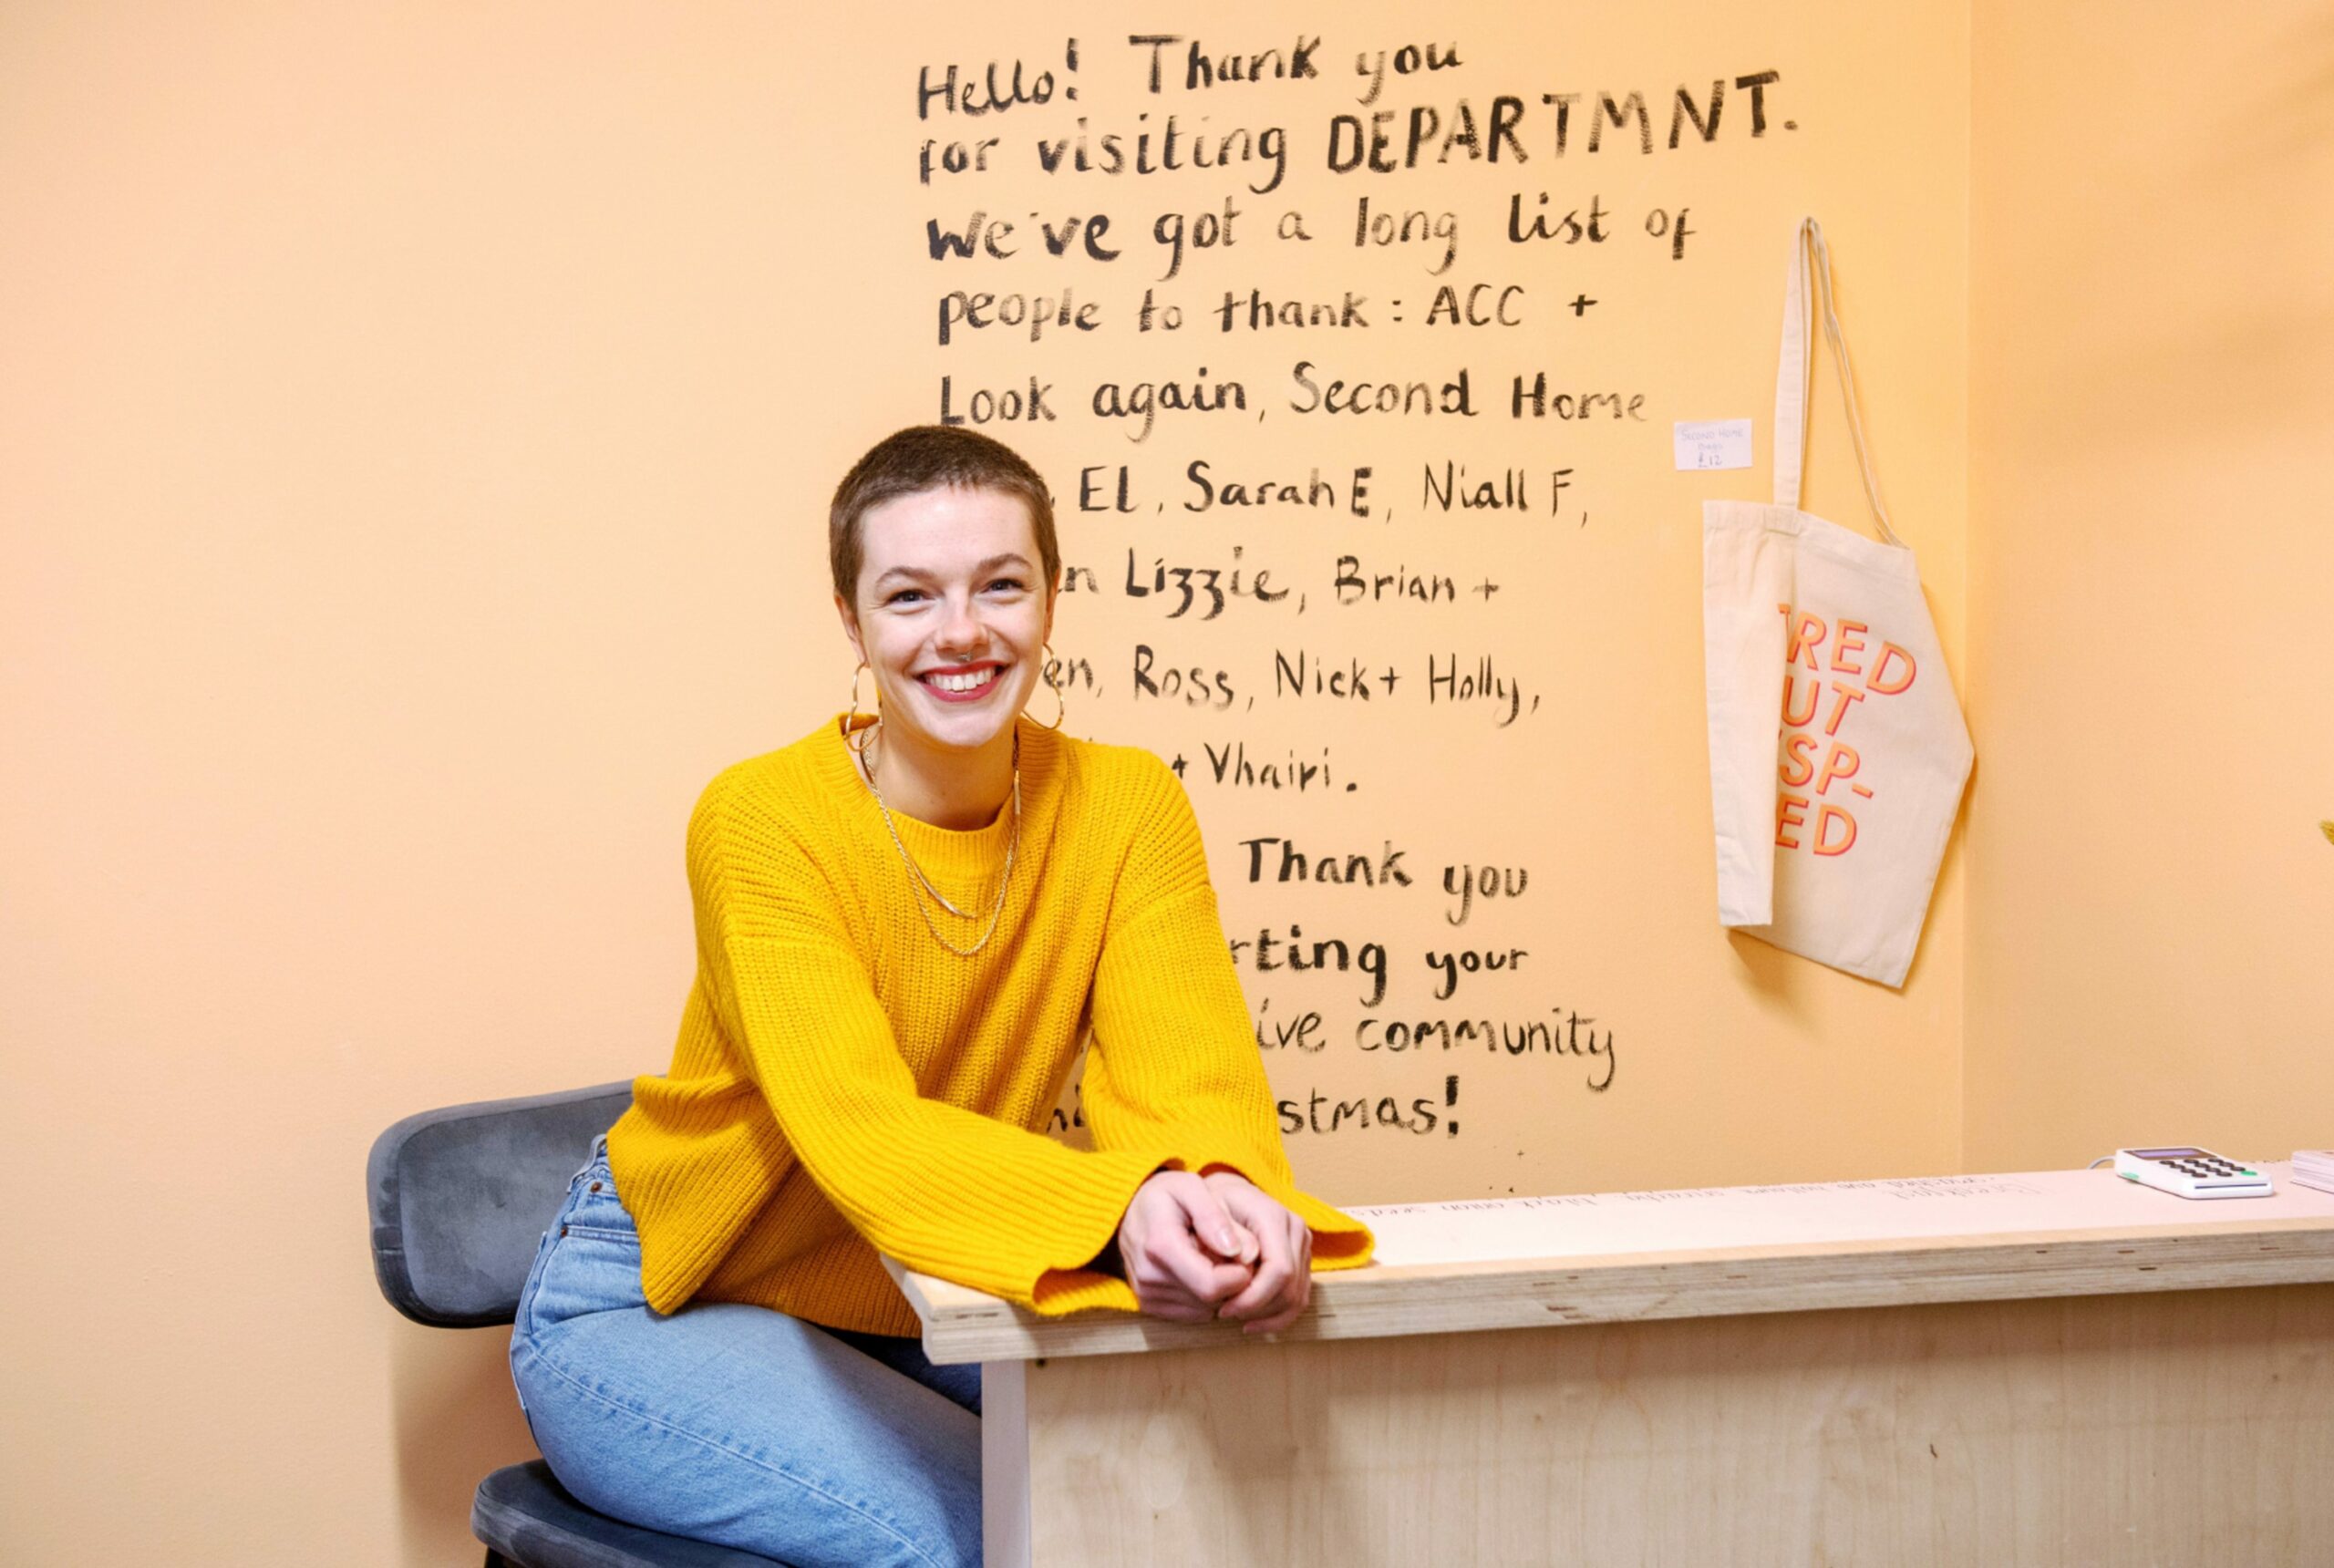 Hello! Thank you
for visiting DEPARTMNT.
We've got a long list of
people to thank: ACC +
Look again, Second Home
EL, Sarah E, Niall F,
n Lizzie, Brian +
en, Ross, Nick + Holly,
+ Vhairi.
Thank you
rting your
ive community
stmas!
SECOND HOME
£12
IRED
UT
SP-
ED